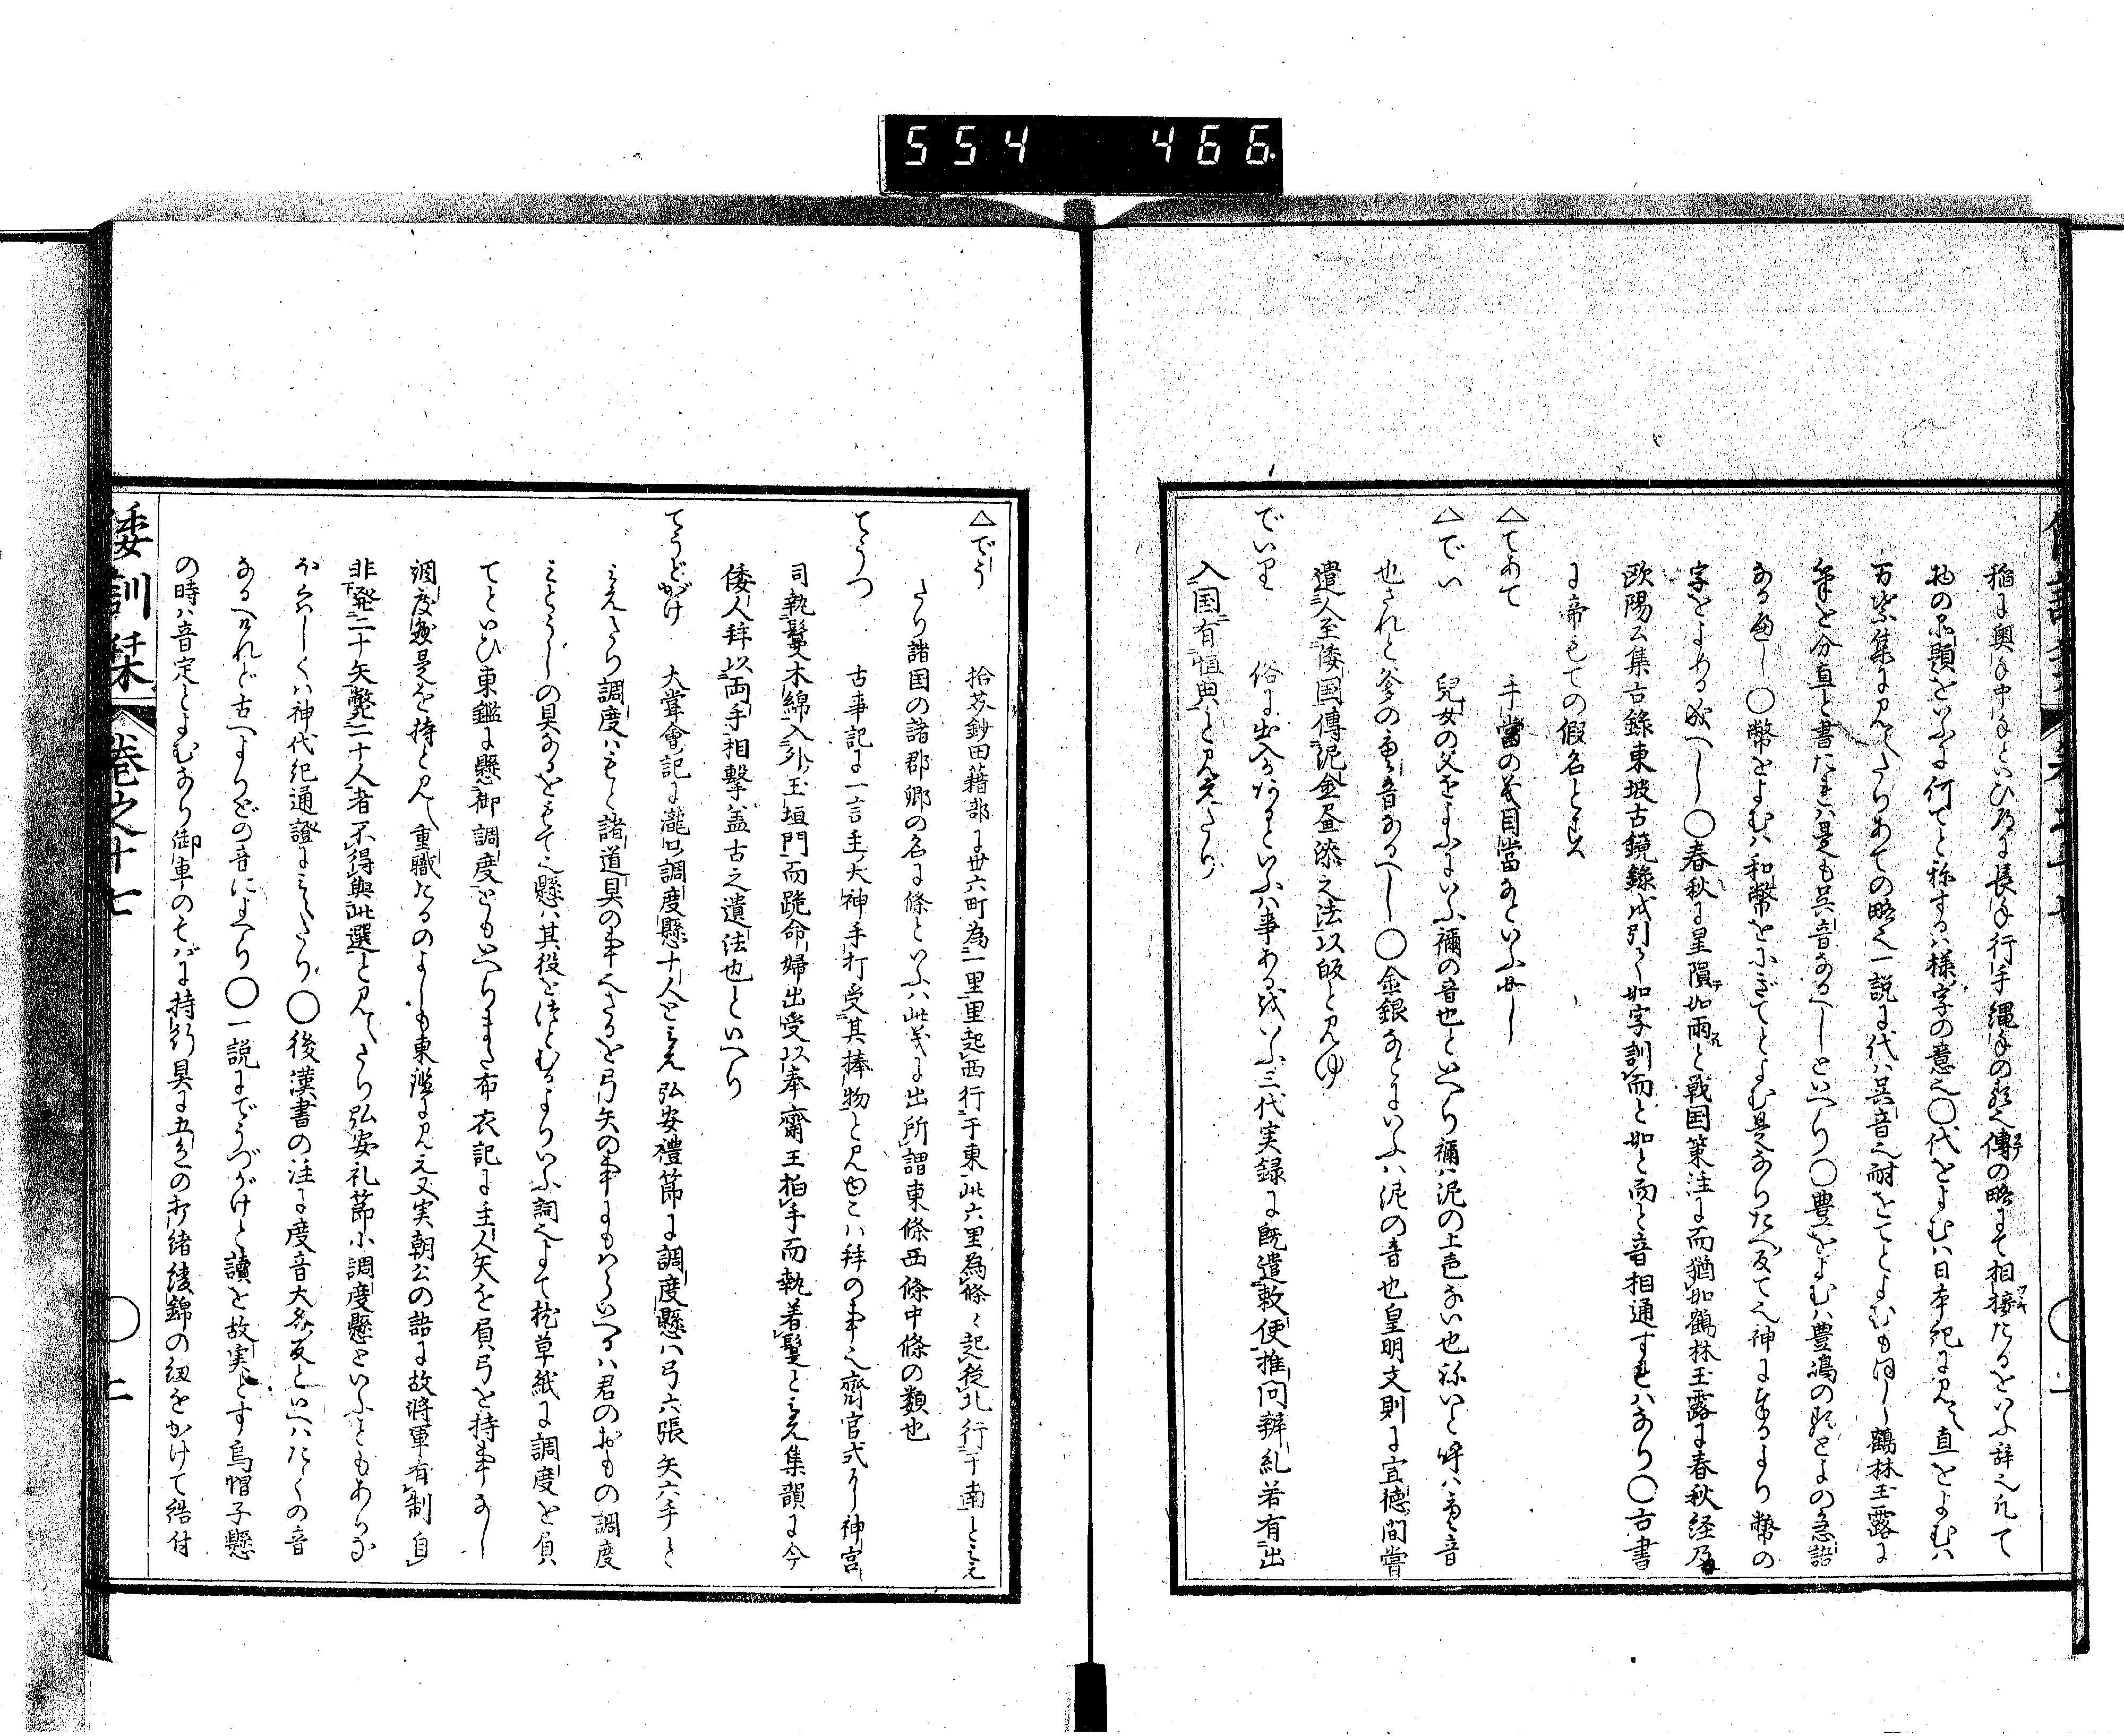 554 466
稲に奥手中手といひ乃に長手行手縄手の類也傳の略にて相接たるをいふ辞也凡て
物の品類をいふに何てと称するハ様字の意也〇代をよむハ日本紀に見ゆ直をよむハ
万葉集に見えたりあての略也一説に代ハ呉音也耐をてとよむも同し鶴林玉露に
筆を分直と書たれハ是も呉音なるへしといへり〇豊をよむハ豊嶋の類とよの急語
なるへし〇幣をよむハ和幣をにぎてとよむ是なりたへ反て也神に奉るより幣の
字をよめる成へし〇春秋に星隕如雨と戦国策注に而猶如鶴林玉露に春秋経及
欧陽公集古録東坡古鏡録を引く如字訓而と如と而と音相通すれハなり〇古書
に帝もての假名とす
△てあて 手當の義目當なといふ也
△でい 兒女の父をよふにいふ禰の音也といへり禰ハ泥の上声ない也ねいと呼ハ音
也されと爹の重音なるへし〇金銀なとにいふハ泥の音也皇明文則に宣徳間嘗
遣人至倭国傳泥金画漆之法以皈と見ゆ
でいり 俗に出入りといふハ事あるをいふ三代実録に既遣敕使推問辨糺若有出
入国有恒典と見えたり
△でう 拾芥鈔田藉部に丗六町為一里里起西行于東此六里為條々起後北行于南とみえ
たり諸国の諸郡郷の名に條といふハ此義に出所謂東條西條中條の類也
てうつ 古事記に一言主大神手打受其捧物と見ゆこハ拜の事也齋官式に神宮
司執鬘木綿入外玉垣門而跪命婦出受以奉齋王拍手而執着鬘とみえ集韻に今
倭人拜以両手相撃盖古之遺法也といへり
てうどがけ 大嘗會記に瀧口調度懸十人とみえ弘安禮節に調度懸ハ弓六張矢六手と
みえたり調度ハもと諸道具の事也さるを弓矢の事にもいへるハ君のおもの調度
みとらしの具なるをもて也懸ハ其役をつとむるよりいふ詞也よて枕草紙に調度を負
てといひ東鑑に懸御調度ともいへりまた布衣記に主人矢を負弓を持事なし
調度懸是を持と見ゆ重職たるのよしも東鑑に見え又実朝公の語に故将軍有制自
非発二十矢斃二十人者不得與此選と見えたり弘安礼節小調度懸といふともありな
ほくハしくハ神代紀通證にみえたり〇後漢書の注に度音大各反といへハたくの音
なるへけれど古へよりどの音によへり〇一説にでうづがけと讀を故実とす烏帽子懸
の時ハ音定とよむなり御車のそばに持行具に五色の打緒綾錦の紐をかけて結付
倭訓栞 巻之十七 〇 上